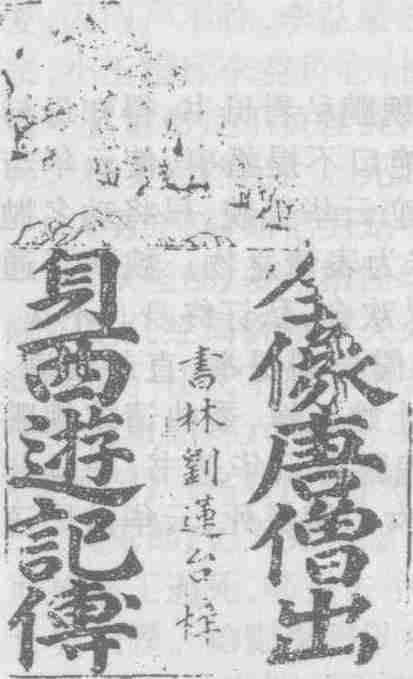 全像唐僧出
書林劉蓮台梓
身西遊記傳